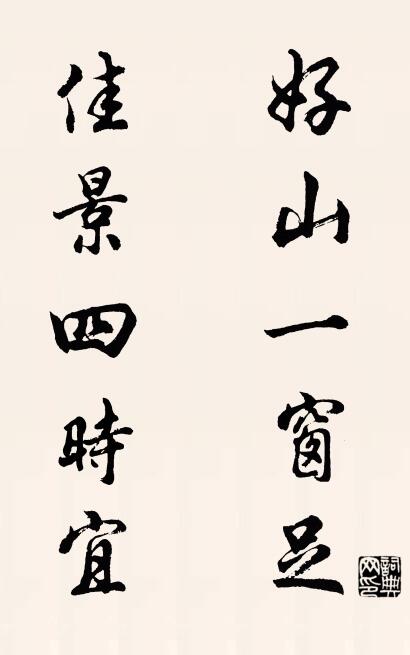 好山一窗足
佳景四時宜
詞典网印